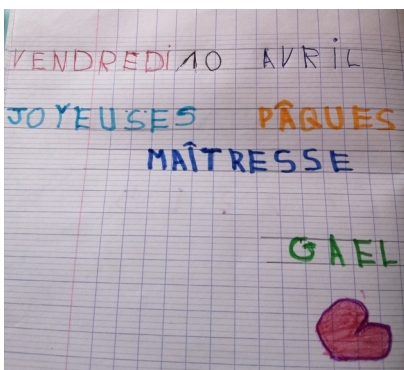 VENDREDI 10 AVRIL
JOYEUSES PÂQUES
MAÎTRESSE
GAEL